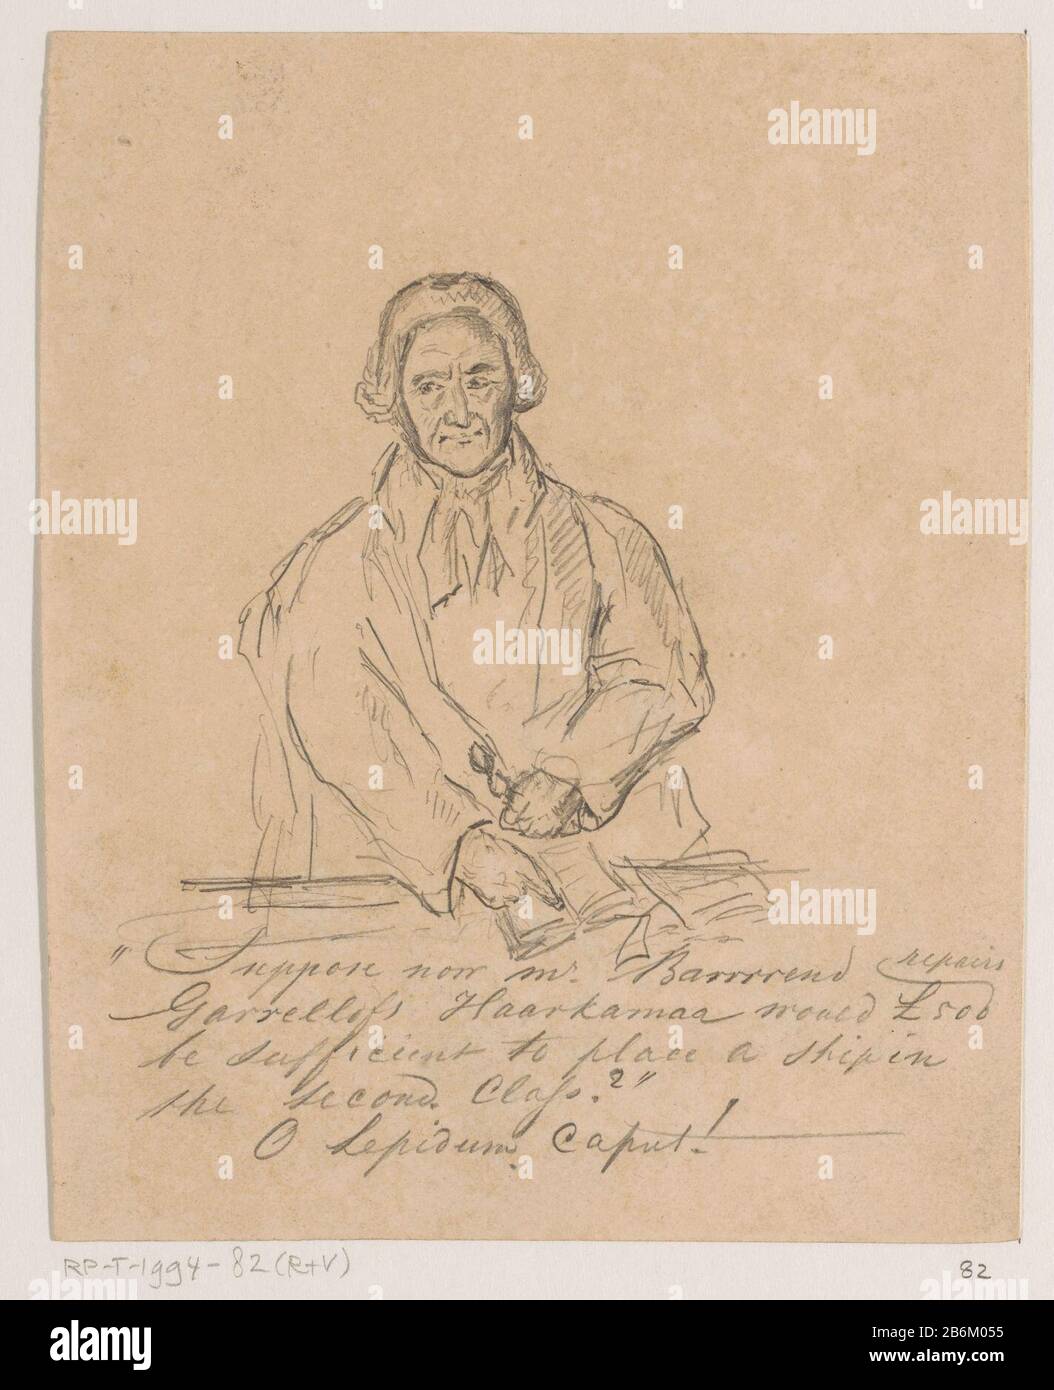 "Suppose now mr. Barrrrend repairs
Garrellofs Haarkamaa would £500
be sufficient to place a ship in
the second Class.?"
O Lepidum Caput!
RP-T-1994-82 (R+V)
82
alamy
Image ID: 2B6M055
www.alamy.com